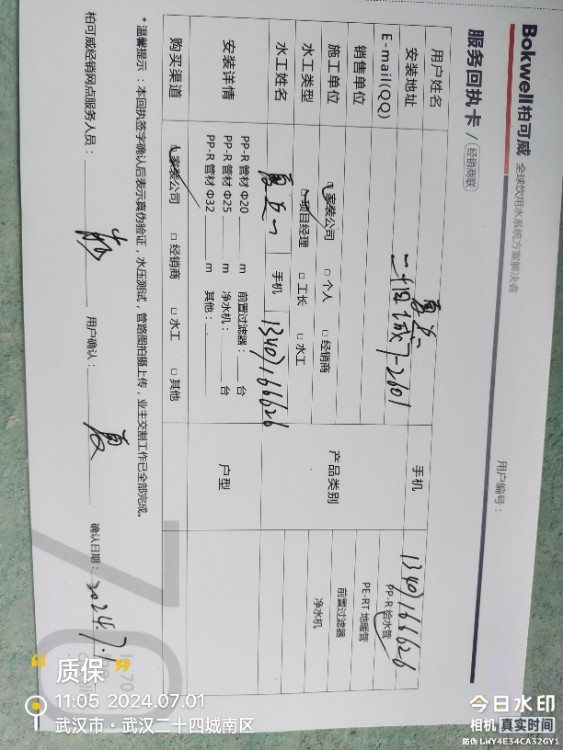 Bokwell柏可威 全球饮用水系统方案解决者
服务回执卡 / 经销商联
用户编号：
用户姓名
手机 13407166626
安装地址 二十四城7-2601
E-mail(QQ)
销售单位
产品类别 PP-R 给水管
PE-RT 地暖管
前置过滤器
净水机
施工单位 家装公司 □ 个人 □ 经销商
水工类型 项目经理 □ 工长 □ 水工
水工姓名 手机 13407166626
安装详情 PP-R 管材 Φ20 m 前置过滤器： 台
PP-R 管材 Φ25 m 净水机： 台
PP-R 管材 Φ32 m 其他：
户型
购买渠道 家装公司 □ 经销商 □ 水工 □ 其他
* 温馨提示：本回执签字确认后表示真伪验证，水压测试，管路图拍摄上传，业主交割工作已全部完成。
柏可威经销网点服务人员： 用户确认： 夏 确认日期： 2024.7.
70
“ 质保 ”
11:05 2024.07.01
武汉市·武汉二十四城南区
今日水印
相机 真实时间
防伪 LWY4E34CA32GY1